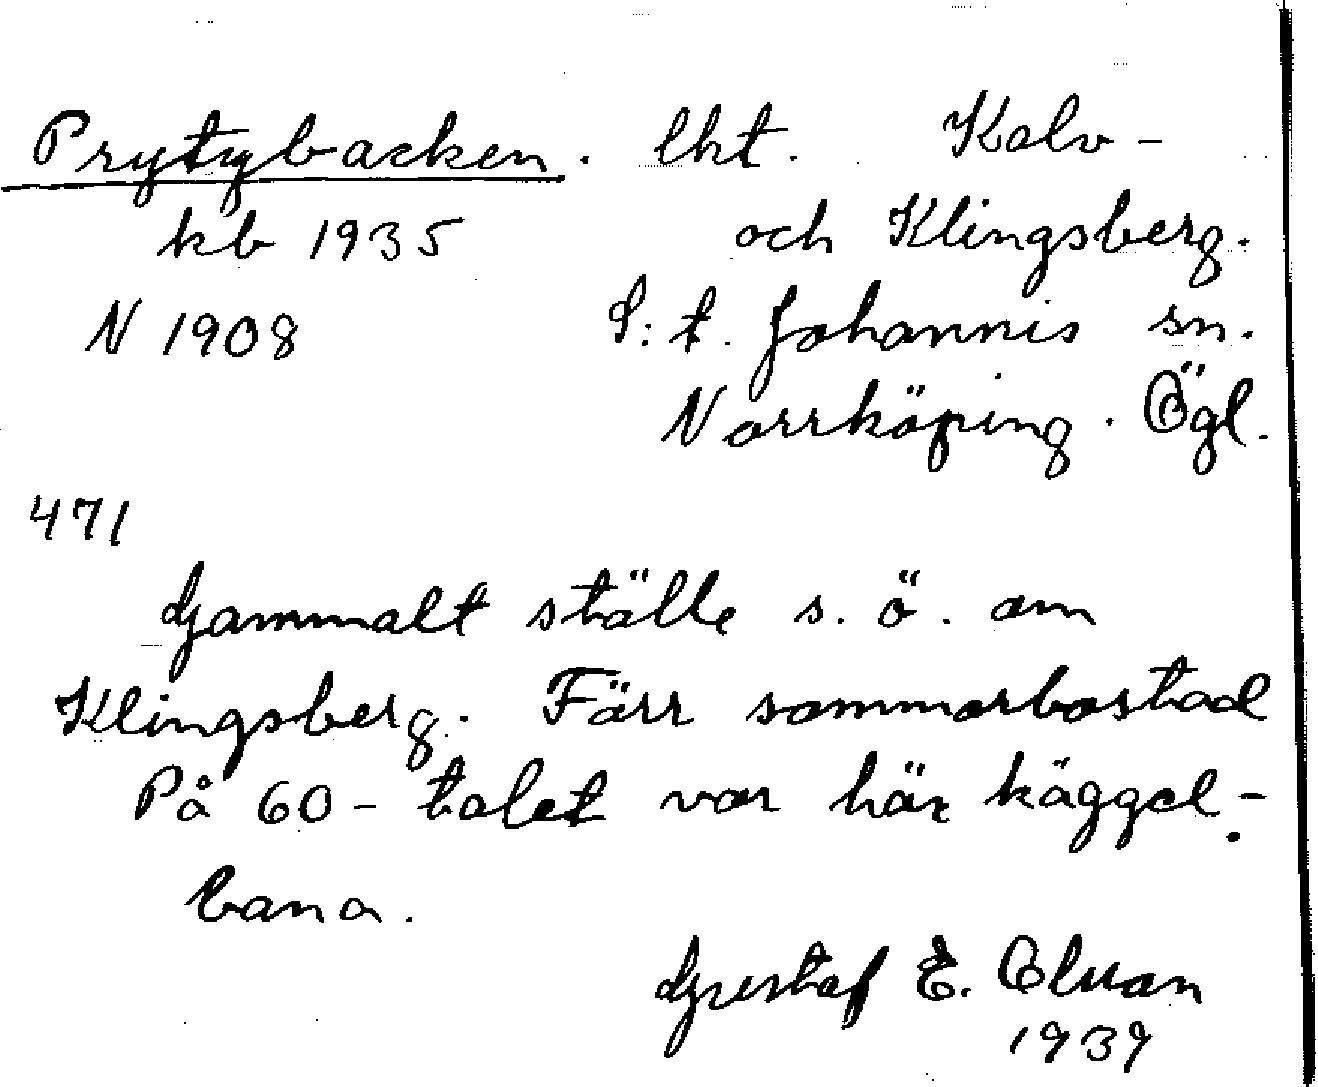 Prytzbacken. lht. Kalv-
kb 1935 och Klingsberg.
N 1908 S:t. Johannis sn.
Norrköping. Ögl.
471
Gammalt ställe s. ö. om
Klingsberg. Förr sommarbostad
På 60-talet var här käggel-
bana.
Gustaf E.
1939